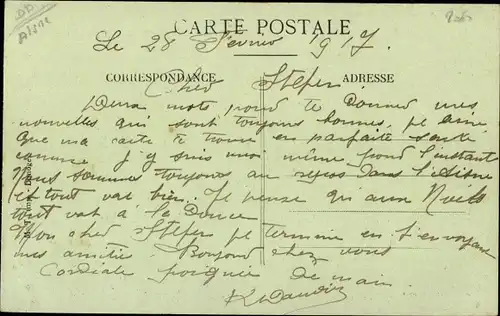 CARTE POSTALE
Le 28 Fevrier 1917.
CORRESPONDANCE
ADRESSE
Cher Stefen
Deux mots pour te Donner mes
nouvelles qui sont toujours bonnes, je
Que ma carte te trouve en parfaite santé
comme j'y suis moi même pour l'instant
Nous sommes toujours au repos Dans l'Aisne
et tout va bien. Je pense qu'aux
tout va à la Douce
Mon cher Stefen je termine en t'envoyant
mes amitiés Bonjour chez vous
Cordiale poignée De main.